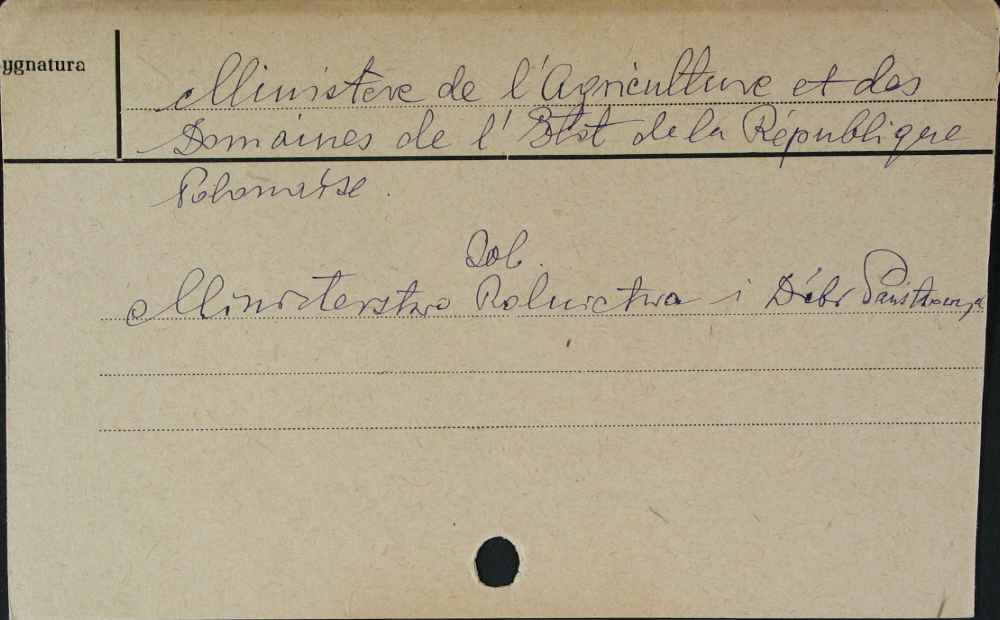 ygnatura
Ministère de l'Agriculture et des
Domaines de l'Etat de la République
Polonaise.
Zob.
Ministerstwo Rolnictwa i Dóbr Państwowych